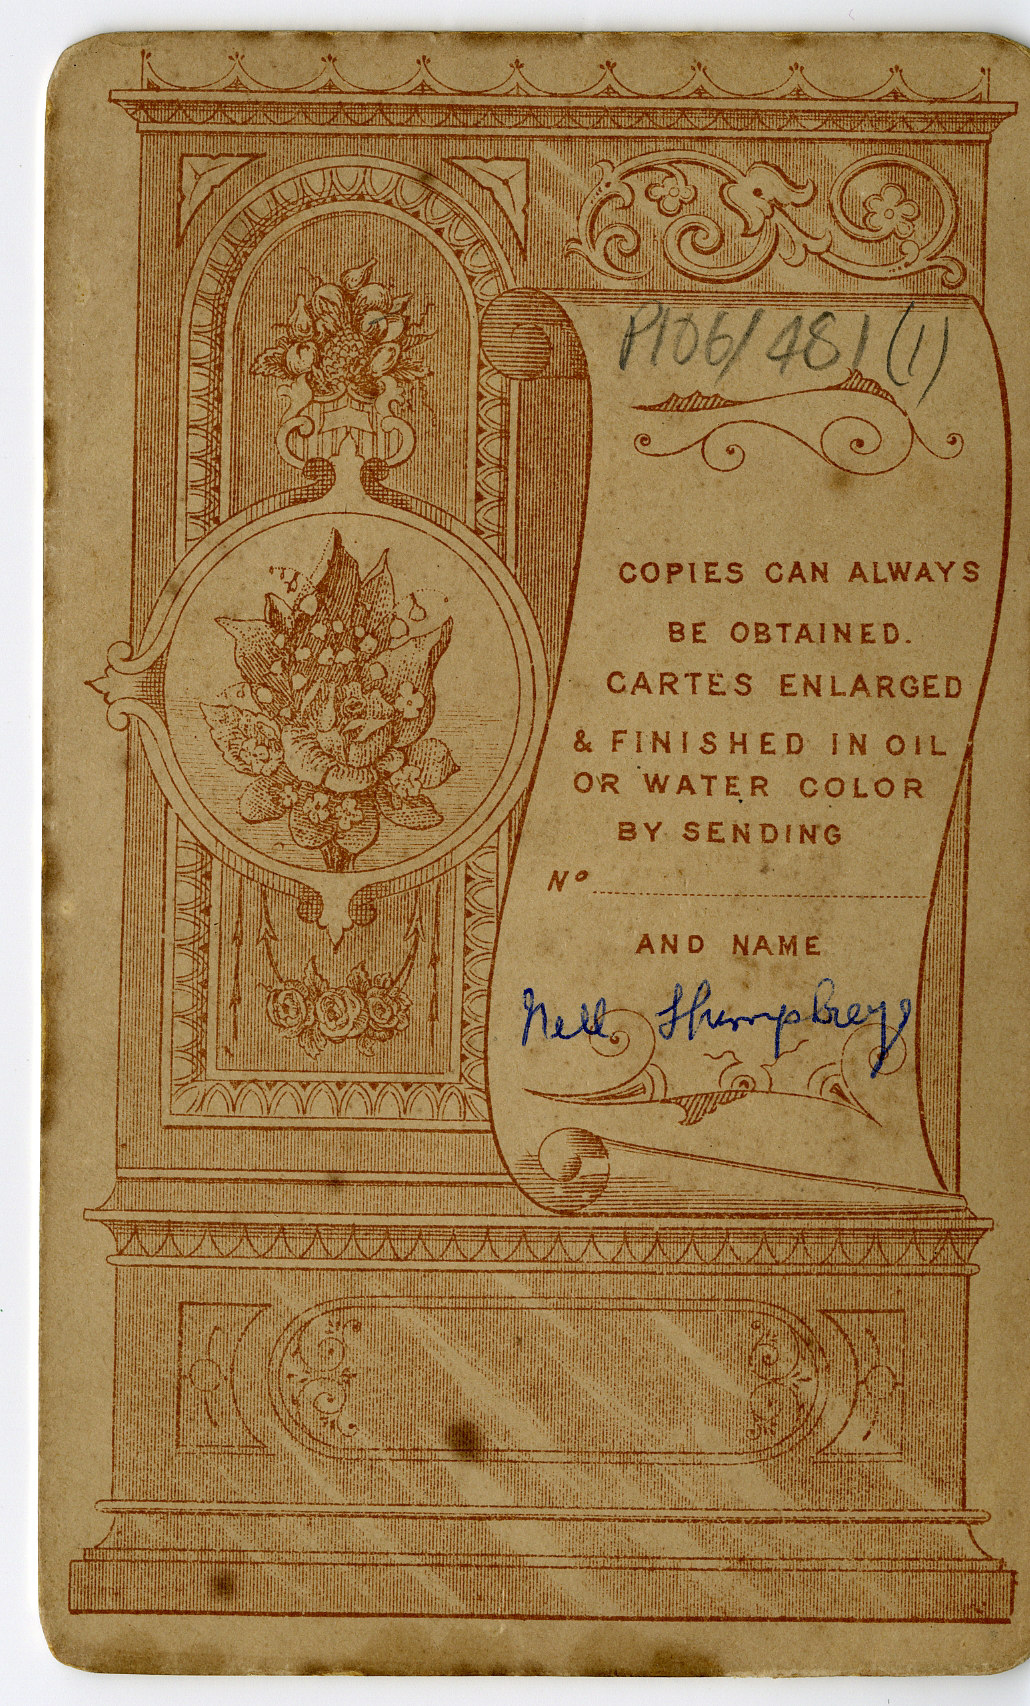 P106/481(1)
COPIES CAN ALWAYS
BE OBTAINED.
CARTES ENLARGED
& FINISHED IN OIL
OR WATER COLOR
BY SENDING
Nº
AND NAME
Nell Humphreys